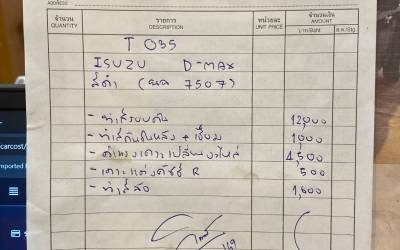 จำนวน รายการ หน่วยละ จำนวนเงิน
QUANTITY DESCRIPTION UNIT PRICE บาท/Baht ส.ต./Stg.
T 035
ISUZU D-MAX
สีดำ ( 7507)
- ทำสีรอบคัน 12,000
- ทำสีคันในหลัง + เชื่อม 1,000
- เคาะเปลี่ยน 4,500
- เคาะแต่งคัชชี R 500
- ทำสีล้อ 1,600
carcost/
mported